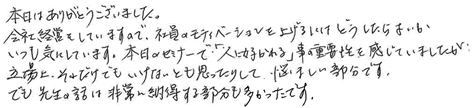 本日はありがとうございました。
会社経営をしていますので、社員のモティベーションを上げるにはどうしたらよいか
いつも気にしています。本日のセミナーで「人に好かれる」事の重要性を感じていましたが
立場上、それだけでもいけないとも思ったりして悩ましい部分です。
でも先生の話は非常に納得する部分も多かったです。